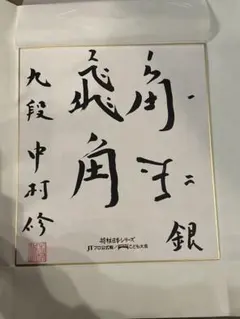 角
銀
飛角
九段 中村修
将棋日本シリーズ
JTプロ公式戦/テーブルマークこども大会